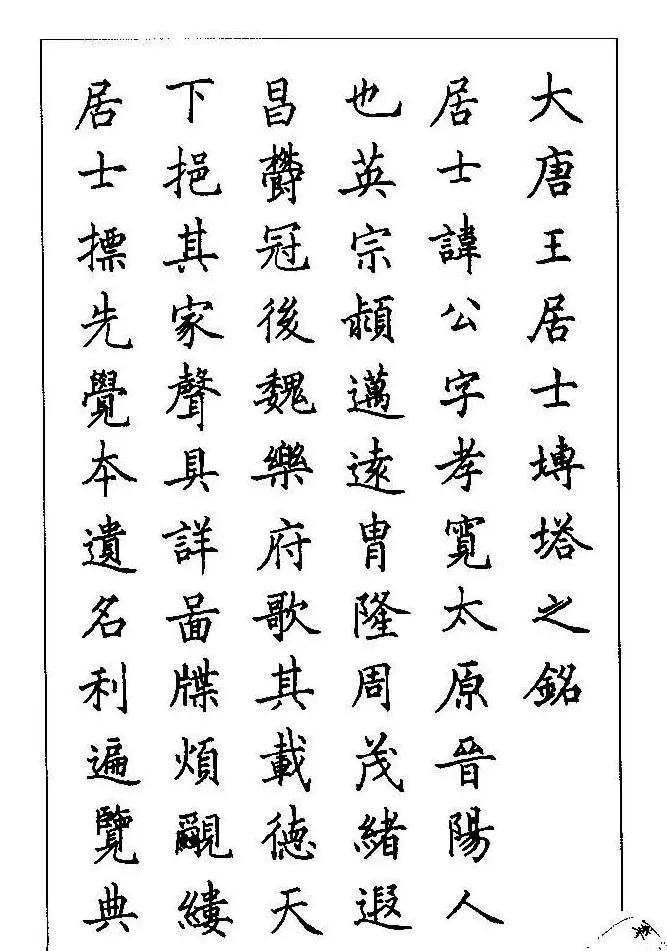 大唐王居士塼塔之銘
居士諱公字孝寬太原晉陽人
也英宗頴邁遠胄隆周茂緒遐
昌欝冠後魏樂府歌其載德天
下挹其家聲具詳啚牒煩覶縷
居士摽先覺夲遺名利遍覽典